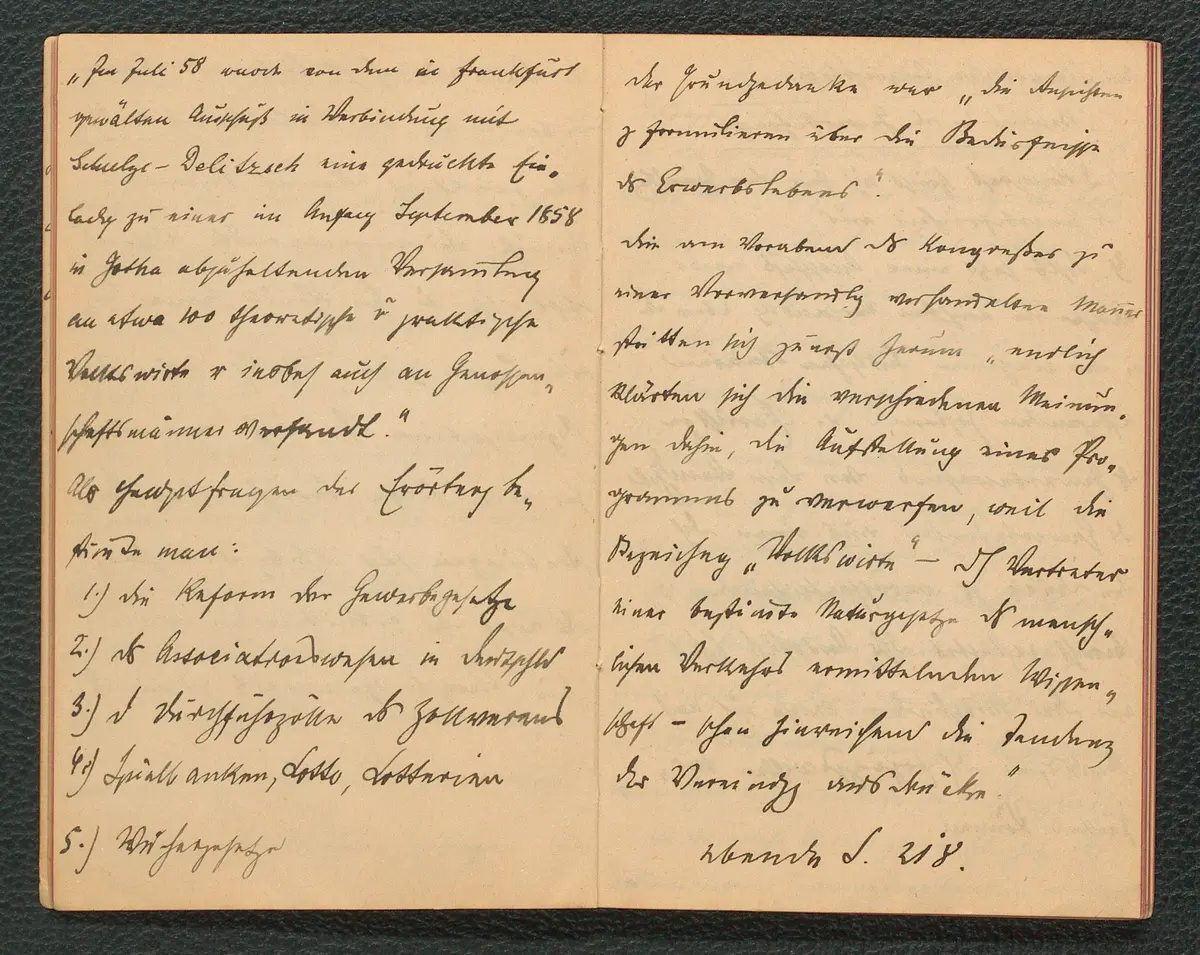 „Im Juli 58 wurde von dem in Frankfurt
gewälten Ausschuß in Verbindung mit
Schulze-Delitzsch eine gedruckte Ein-
ladg zu einer im Anfang September 1858
in Gotha abzuhaltenden Versammlung
an etwa 100 theoretische u praktische
Volkswirte u insbes auch an Genossen-
schaftsmänner versandt."
Als Hauptfragen der Erörterg be-
stimte man:
1.) die Reform der Gewerbegesetze
2.) ds Associationswesen in Deutschld
3.) d Durchfuhrzölle ds Zollvereins
4.) Spielbanken, Lotto, Lotterien
5.) Wuchergesetze
der Grundgedanke war „die Ansichten
z formulieren über die Bedürfnisse
ds Erwerbslebens".
die am Vorabend ds Kongreßes zu
einer Vorversamlg versandelten Männer
stritten sich zuerst herum „endlich
klärten sich die verschiedenen Meinun-
gen dahin, die Aufstellung eines Pro-
gramms zu verwerfen, weil die
Bezeichng „Volkswirte" – d h Vertreter
einer bestimte Naturgesetze ds mensch-
lichen Verkehrs ermittelnden Wissen-
schaft – schon hinreichend die Tendenz
der Vereinigg ausdrücke."
ebenda S. 218.